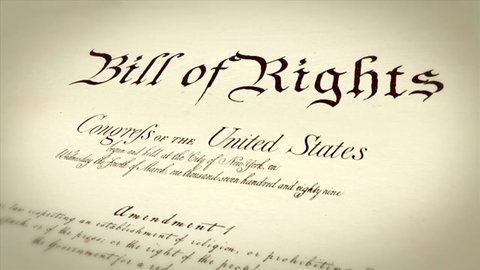 Bill of Rights
Congreſs OF THE United States
begun and held at the City of New York, on
Wednesday the fourth of March, one thousand seven hundred and eighty nine
Amendment 1
law respecting an establishment of religion, or prohibiting
or of the press; or the right of the people
the Government for a